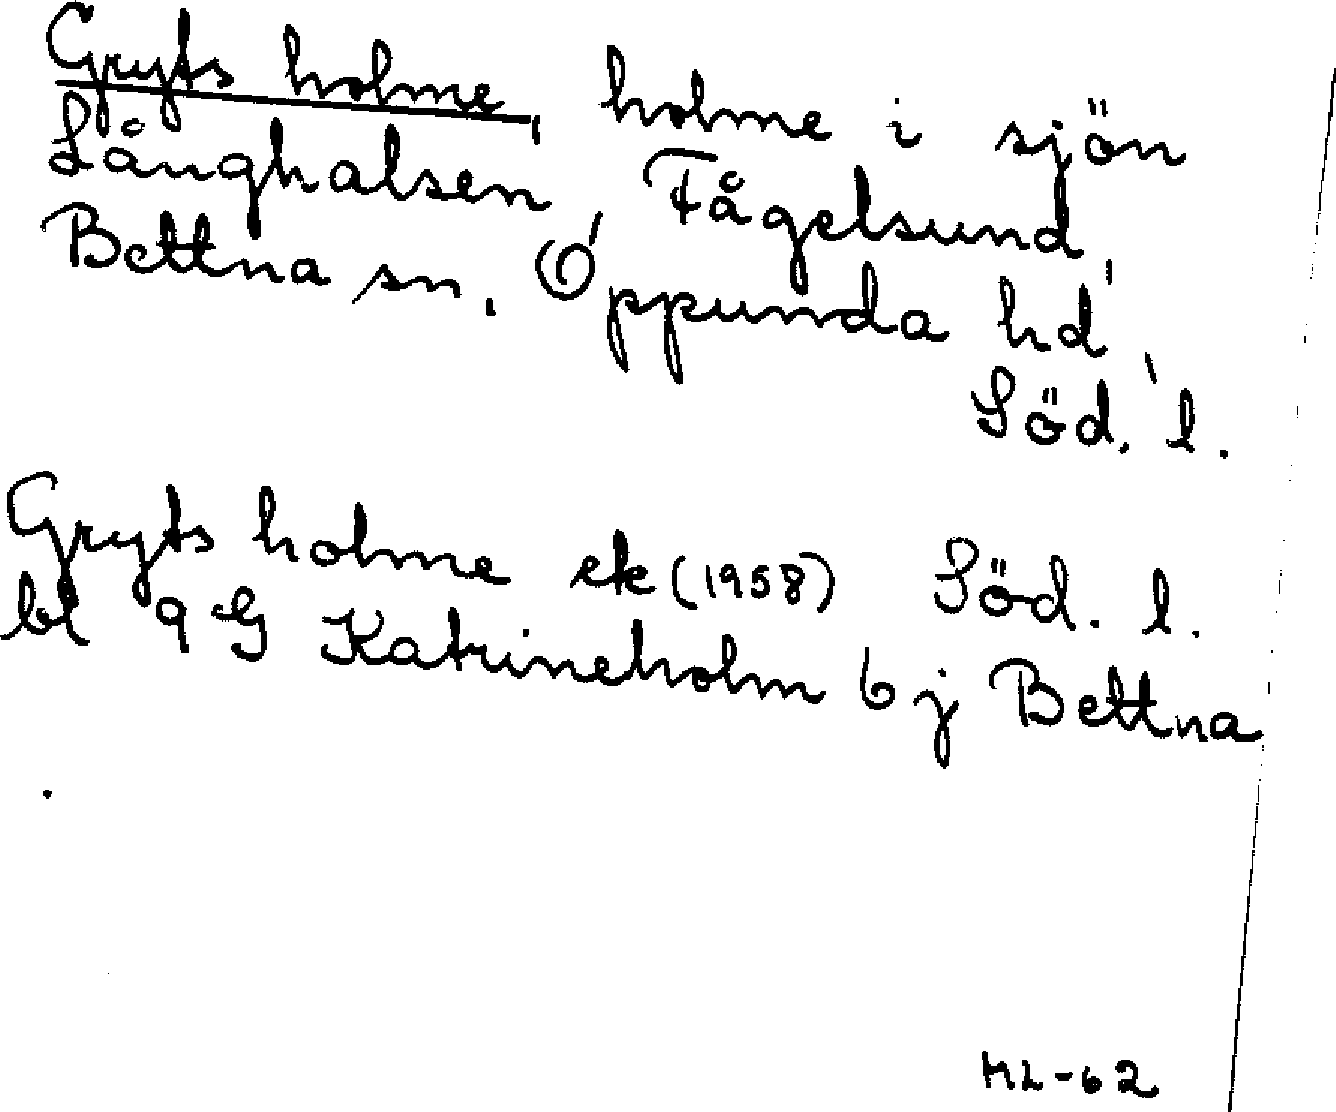 Gryts holme, holme i sjön
Långhalsen, Fågelsund,
Bettna sn, Oppunda hd,
Söd. l.
Gryts holme ek (1958) Söd. l.
bl 9 G Katrineholm 6 j Bettna
ML-62